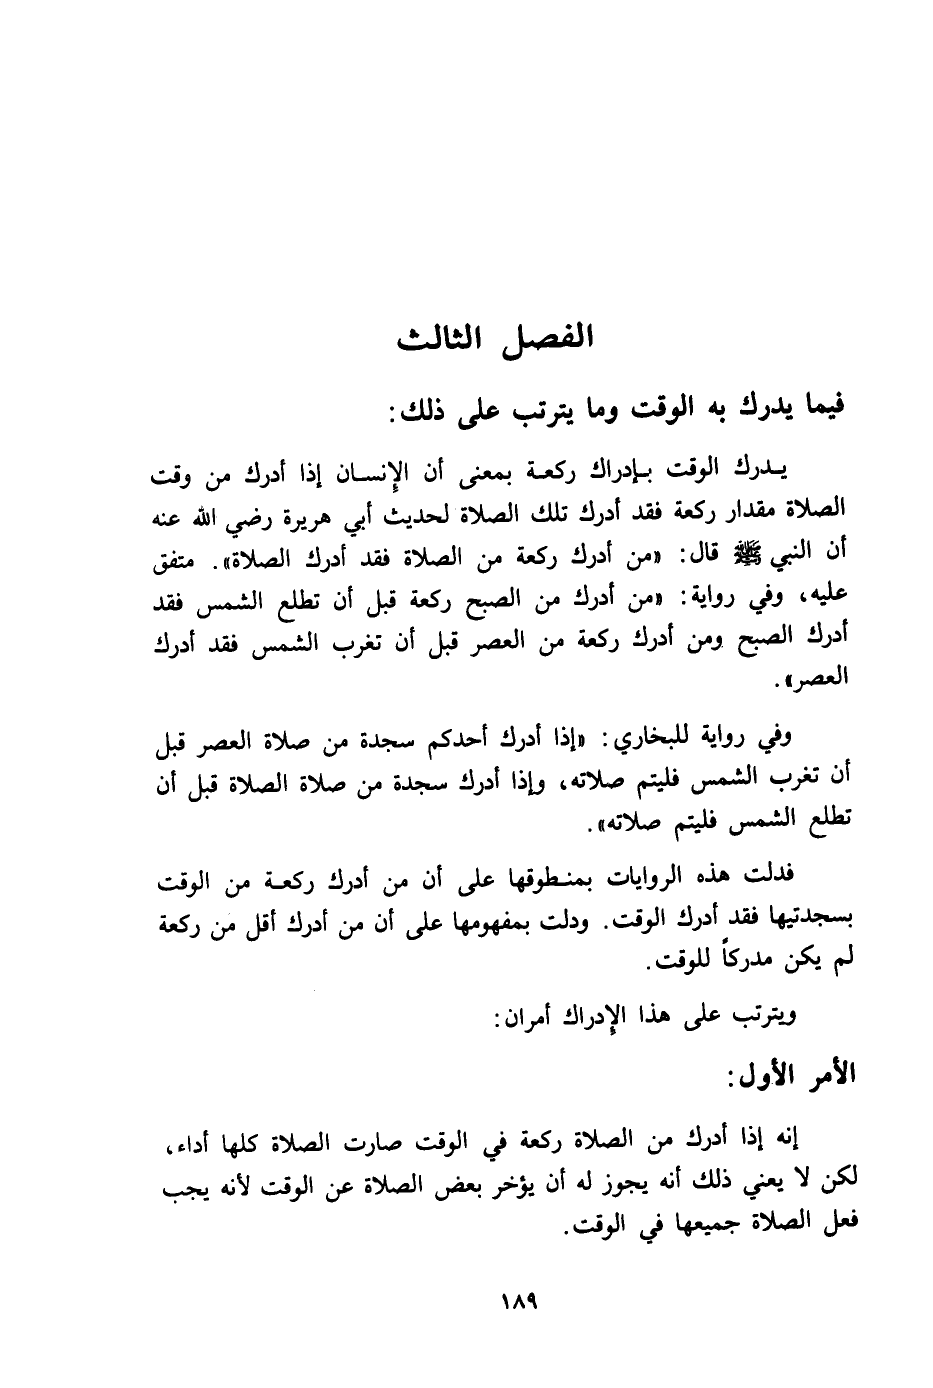 الفصل الثالث
فيما يدرك به الوقت وما يترتب على ذلك:
يـدرك الوقت بـإدراك ركعـة بمعنى أن الإنسـان إذا أدرك من وقت
الصلاة مقدار ركعة فقد أدرك تلك الصلاة لحديث أبي هريرة رضي الله عنه
أن النبي ﷺ قال: «من أدرك ركعة من الصلاة فقد أدرك الصلاة». متفق
عليه، وفي رواية: «من أدرك من الصبح ركعة قبل أن تطلع الشمس فقد
أدرك الصبح ومن أدرك ركعة من العصر قبل أن تغرب الشمس فقد أدرك
العصر».
وفي رواية للبخاري: «إذا أدرك أحدكم سجدة من صلاة العصر قبل
أن تغرب الشمس فليتم صلاته، وإذا أدرك سجدة من صلاة الصلاة قبل أن
تطلع الشمس فليتم صلاته».
فدلت هذه الروايات بمنـطوقها على أن من أدرك ركعـة من الوقت
بسجدتيها فقد أدرك الوقت. ودلت بمفهومها على أن من أدرك أقل من ركعة
لم يكن مدركاً للوقت.
ويترتب على هذا الإدراك أمران:
الأمر الأول:
إنه إذا أدرك من الصلاة ركعة في الوقت صارت الصلاة كلها أداء،
لكن لا يعني ذلك أنه يجوز له أن يؤخر بعض الصلاة عن الوقت لأنه يجب
فعل الصلاة جميعها في الوقت.
١٨٩